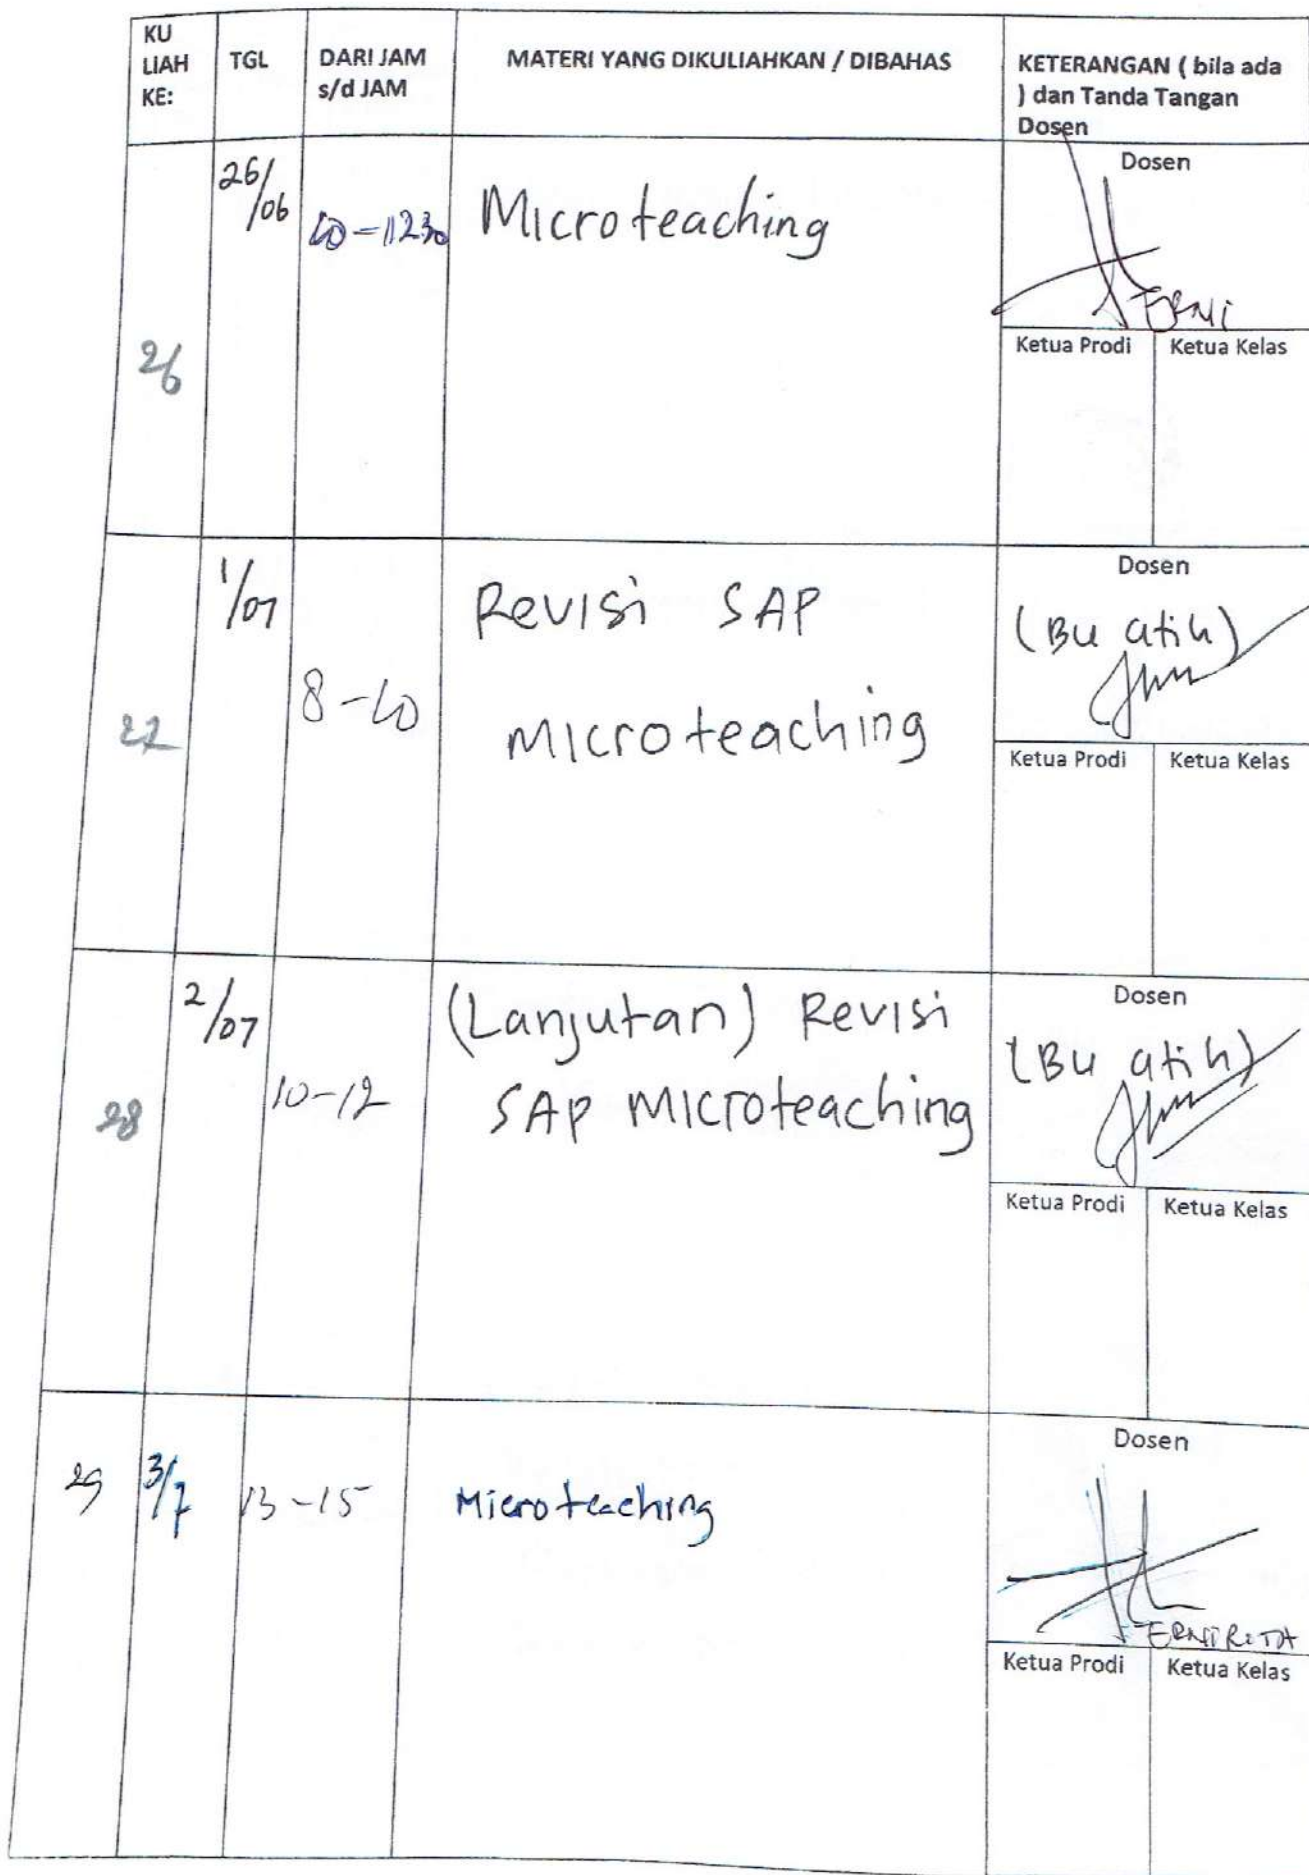 KU
LIAH
KE:
TGL
DARI JAM
s/d JAM
MATERI YANG DIKULIAHKAN / DIBAHAS
KETERANGAN ( bila ada
) dan Tanda Tangan
Dosen
26
26/06
10-1230
Microteaching
Dosen
ERNI
Ketua Prodi
Ketua Kelas
27
1/07
8-10
Revisi SAP
Microteaching
Dosen
(Bu atih)
Ketua Prodi
Ketua Kelas
28
2/07
10-12
(Lanjutan) Revisi
SAP Microteaching
Dosen
(Bu atih)
Ketua Prodi
Ketua Kelas
29
3/7
13-15
Microteaching
Dosen
ERNI RITA
Ketua Prodi
Ketua Kelas